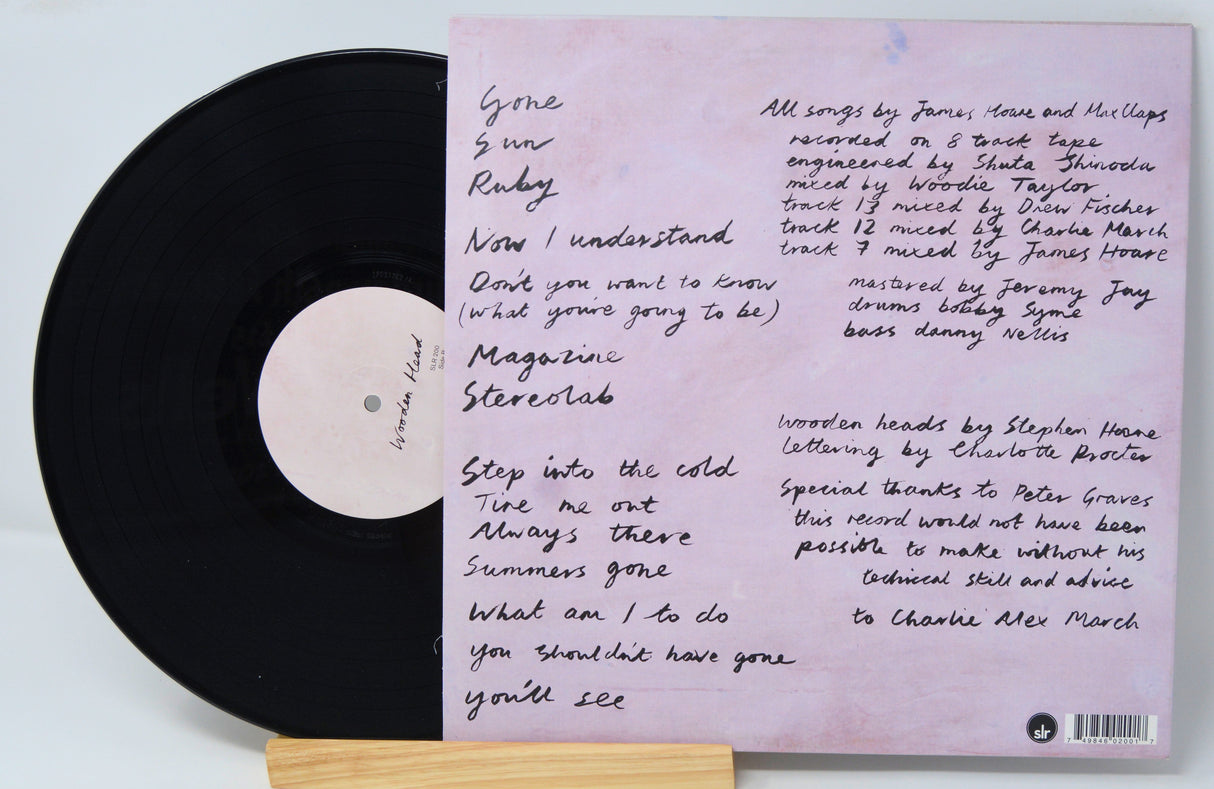 Gone
Sun
Ruby
Now I understand
Don't you want to know
(what you're going to be)
Magazine
Stereolab
Step into the cold
Tire me out
Always there
Summers gone
What am I to do
you shouldn't have gone
you'll see
All songs by James Hoare and Max Claps
recorded on 8 track tape
engineered by Shuta Shinoda
mixed by Woodie Taylor
track 13 mixed by Drew Fischer
track 12 mixed by Charlie March
track 7 mixed by James Hoare
mastered by Jeremy Jay
drums bobby Syme
bass danny Nellis
wooden heads by Stephen Hoare
lettering by Charlotte Procter
Special thanks to Peter Graves
this record would not have been
possible to make without his
technical skill and advice
to Charlie Alex March
Wooden Head
SLR 200
Side B
slr
7 49846 02001 7